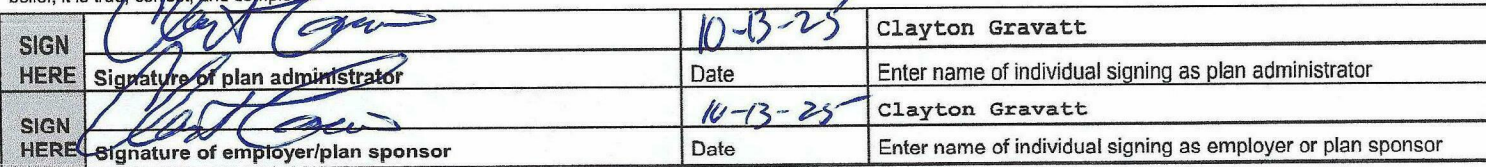 belief, it is true, correct, and
SIGN HERE
10-13-25
Clayton Gravatt
Signature of plan administrator
Date
Enter name of individual signing as plan administrator
SIGN HERE
10-13-25
Clayton Gravatt
Signature of employer/plan sponsor
Date
Enter name of individual signing as employer or plan sponsor